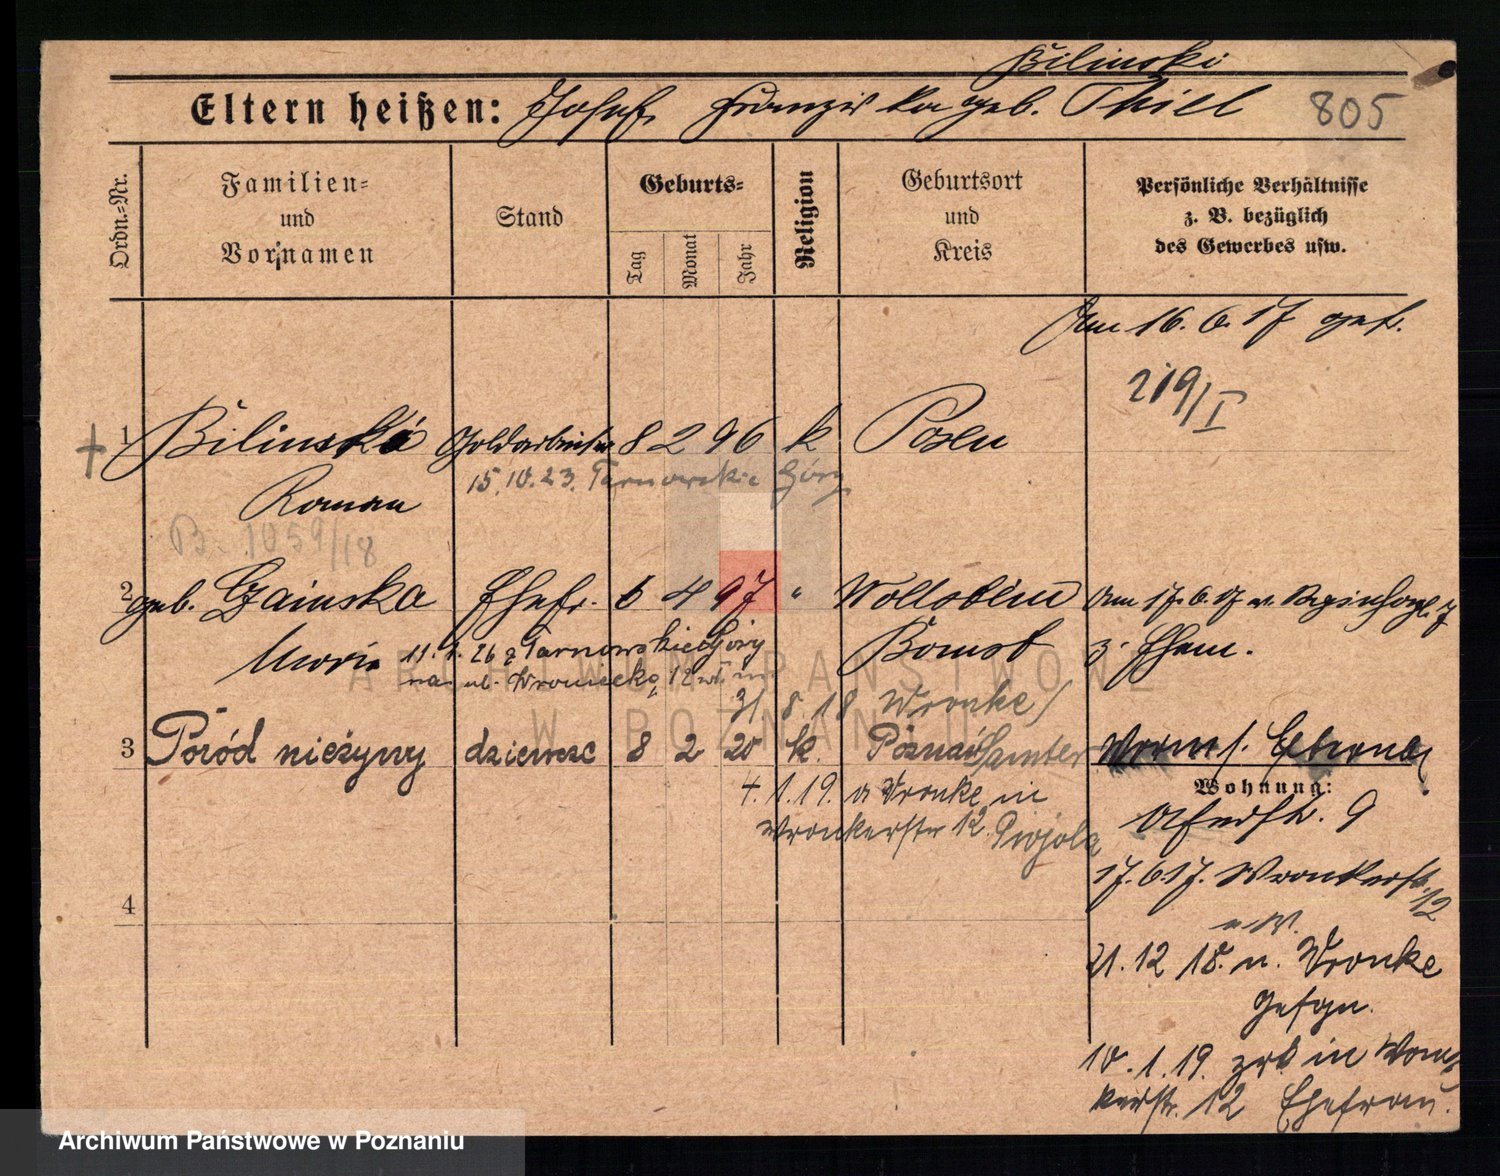 Bilinski
Eltern heißen: Josef, Franziska geb. Thiel 805
Ordn.-Nr.
Familien- und Vornamen
Stand
Geburts-
Tag
Monat
Jahr
Religion
Geburtsort und Kreis
Persönliche Verhältnisse
z. B. bezüglich
des Gewerbes usw.
Am 16. 6. 17 get.
219/I
1 Bilinski Goldarbeiter 8 2 96 k Posen
15.10.23. Tarnowskie Góry
Roman
B. 1059/18
2 geb. Czainska Ehefr. 6 4 97 " Wollstein Am 17. 6. 17 v.
Maria
Bomst
z. Ehem.
26 z Tarnowskie Góry
na ul. Wroniecką 12
31 8 18 Wronke/
3 Poród nieżywy dziewcz 8 2 20 k. Poznań Samter
Wohnung:
4. 1. 19. a Wronke in
Wronkerstr 12
17. 6. 17. Wronkerstr. 12
4
n. W.
21. 12 18. n. Wronke
Gefgn.
10. 1. 19. zrk in Wron-
kerstr. 12 Ehefrau.
ARCHIWUM PAŃSTWOWE
W POZNANIU
Archiwum Państwowe w Poznaniu